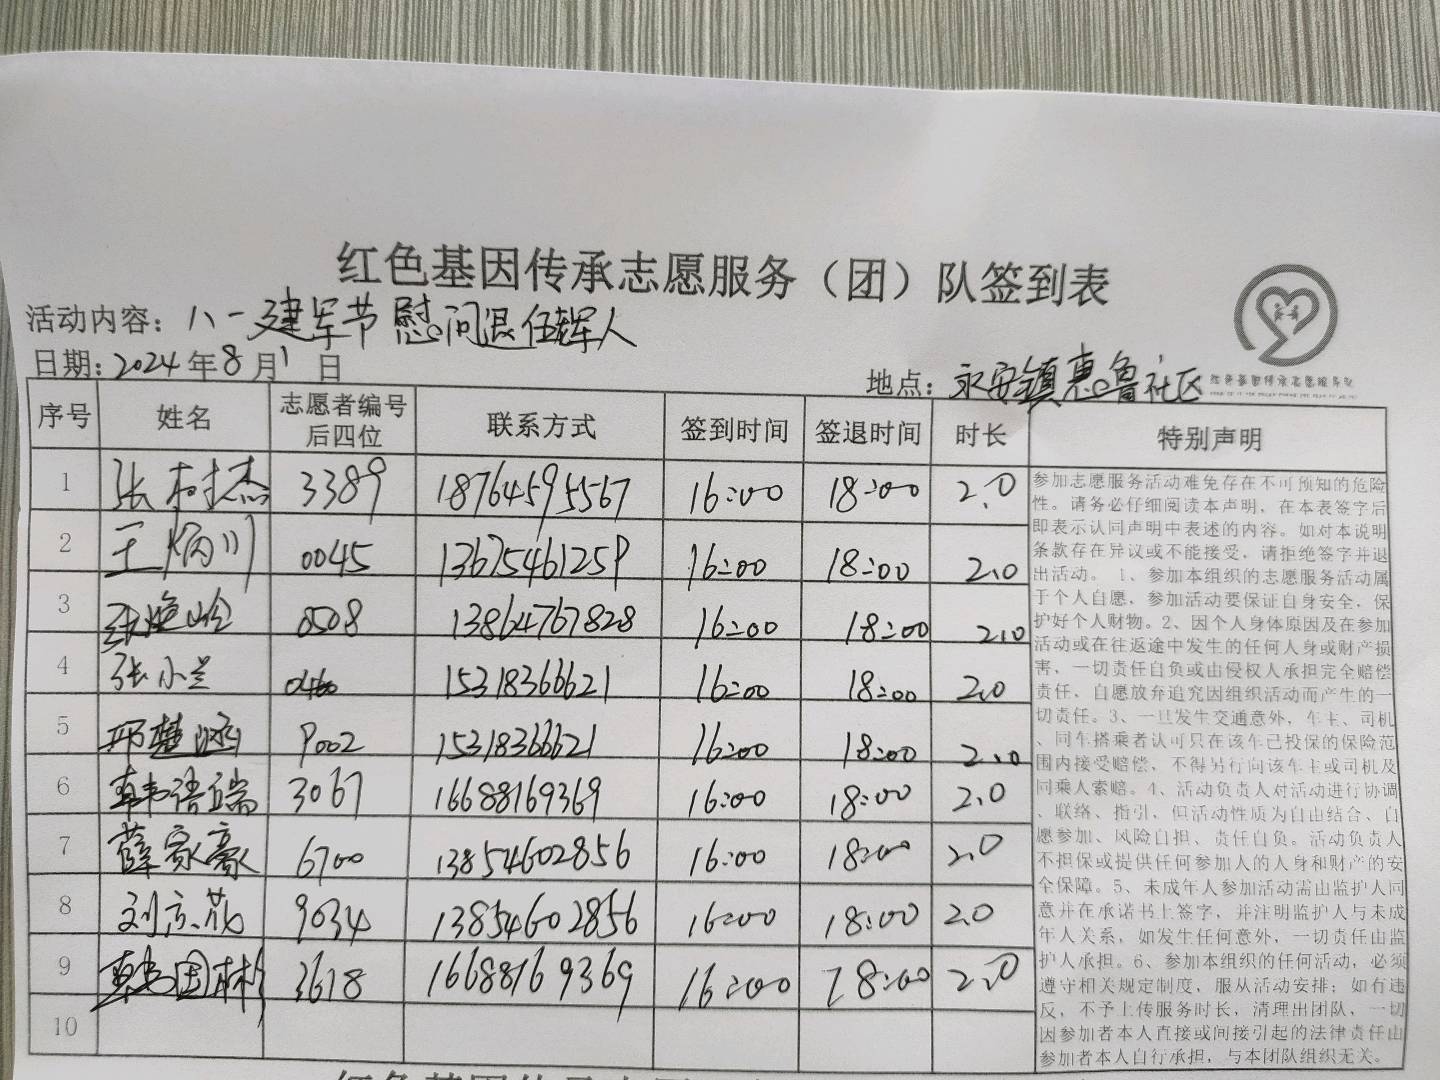 红色基因传承志愿服务（团）队签到表
活动内容：八一建军节慰问退伍军人
日期：2024年8月1日
地点：永安镇惠鲁社区
红色基因传承志愿服务队
序号 姓名 志愿者编号后四位 联系方式 签到时间 签退时间 时长 特别声明
1 张树杰 3389 18764595567 16:00 18:00 2.0
2 王炳川 0045 13675461259 16:00 18:00 2.0
3 0508 13864767828 16:00 18:00 2.0
4 张小兰 15318366621 16:00 18:00 2.0
5 邢楚涵 9002 15318366621 16:00 18:00 2.0
6 韩语端 3067 16688169369 16:00 18:00 2.0
7 薛家豪 6700 13854602856 16:00 18:00 2.0
8 刘京花 9034 13854602856 16:00 18:00 2.0
9 韩国彬 3618 16688169369 16:00 18:00 2.0
10
参加志愿服务活动难免存在不可预知的危险
性。请务必仔细阅读本声明，在本表签字后
即表示认同声明中表述的内容。如对本说明
条款存在异议或不能接受，请拒绝签字并退
出活动。 1、参加本组织的志愿服务活动属
于个人自愿，参加活动要保证自身安全，保
护好个人财物。2、因个人身体原因及在参加
活动或在往返途中发生的任何人身或财产损
害，一切责任自负或由侵权人承担完全赔偿
责任，自愿放弃追究因组织活动而产生的一
切责任。3、一旦发生交通意外，车主、司机
、同车搭乘者认可只在该车已投保的保险范
围内接受赔偿，不得另行向该车主或司机及
同乘人索赔。4、活动负责人对活动进行协调
、联络、指引，但活动性质为自由结合、自
愿参加、风险自担、责任自负。活动负责人
不担保或提供任何参加人的人身和财产的安
全保障。5、未成年人参加活动需由监护人同
意并在承诺书上签字，并注明监护人与未成
年人关系，如发生任何意外，一切责任由监
护人承担。6、参加本组织的任何活动，必须
遵守相关规定制度，服从活动安排；如有违
反，不予上传服务时长，清理出团队，一切
因参加者本人直接或间接引起的法律责任由
参加者本人自行承担，与本团队组织无关。